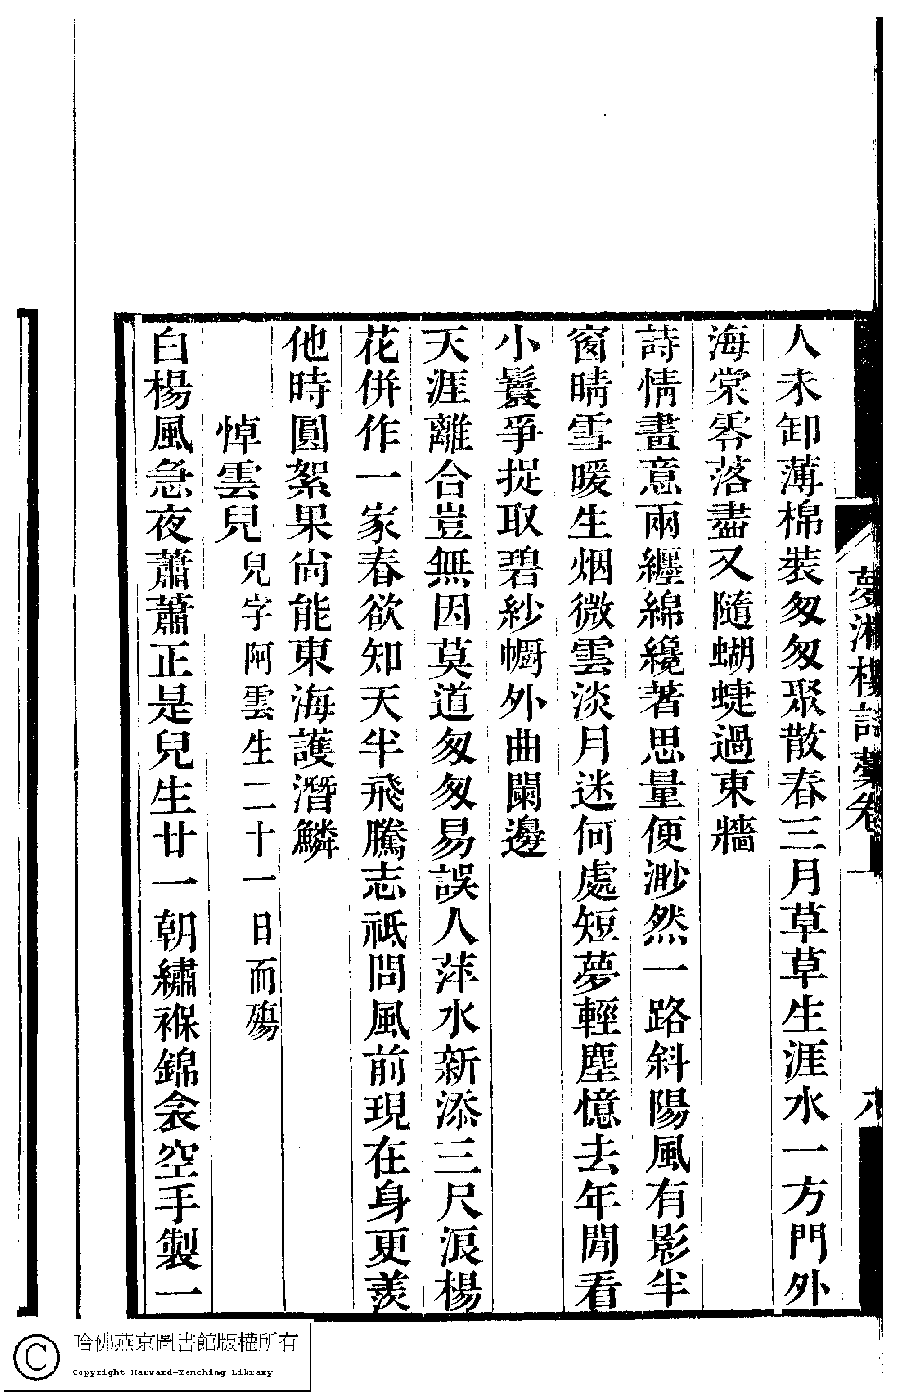 人未卸薄棉裝匆匆聚散春三月草草生涯水一方門外
海棠零落盡又隨蝴蜨過東牆
詩情畫意兩纏綿纔著思量便渺然一路斜陽風有影半
窗晴雪暖生烟微雲淡月迷何處短夢輕塵憶去年閒看
小鬟爭捉取碧紗幮外曲闌邊
天涯離合豈無因莫道匆匆易誤人萍水新添三尺浪楊
花併作一家春欲知天半飛騰志祗問風前現在身更羨
他時圓絮果尙能東海護潛鱗
悼雲兒兒字阿雲生二十一日而殤
白楊風急夜蕭蕭正是兒生廿一朝繡褓錦衾空手製一
夢湘樓詩藁卷上
哈佛燕京圖書館版權所有
Copyright Harvard-Yenching Library